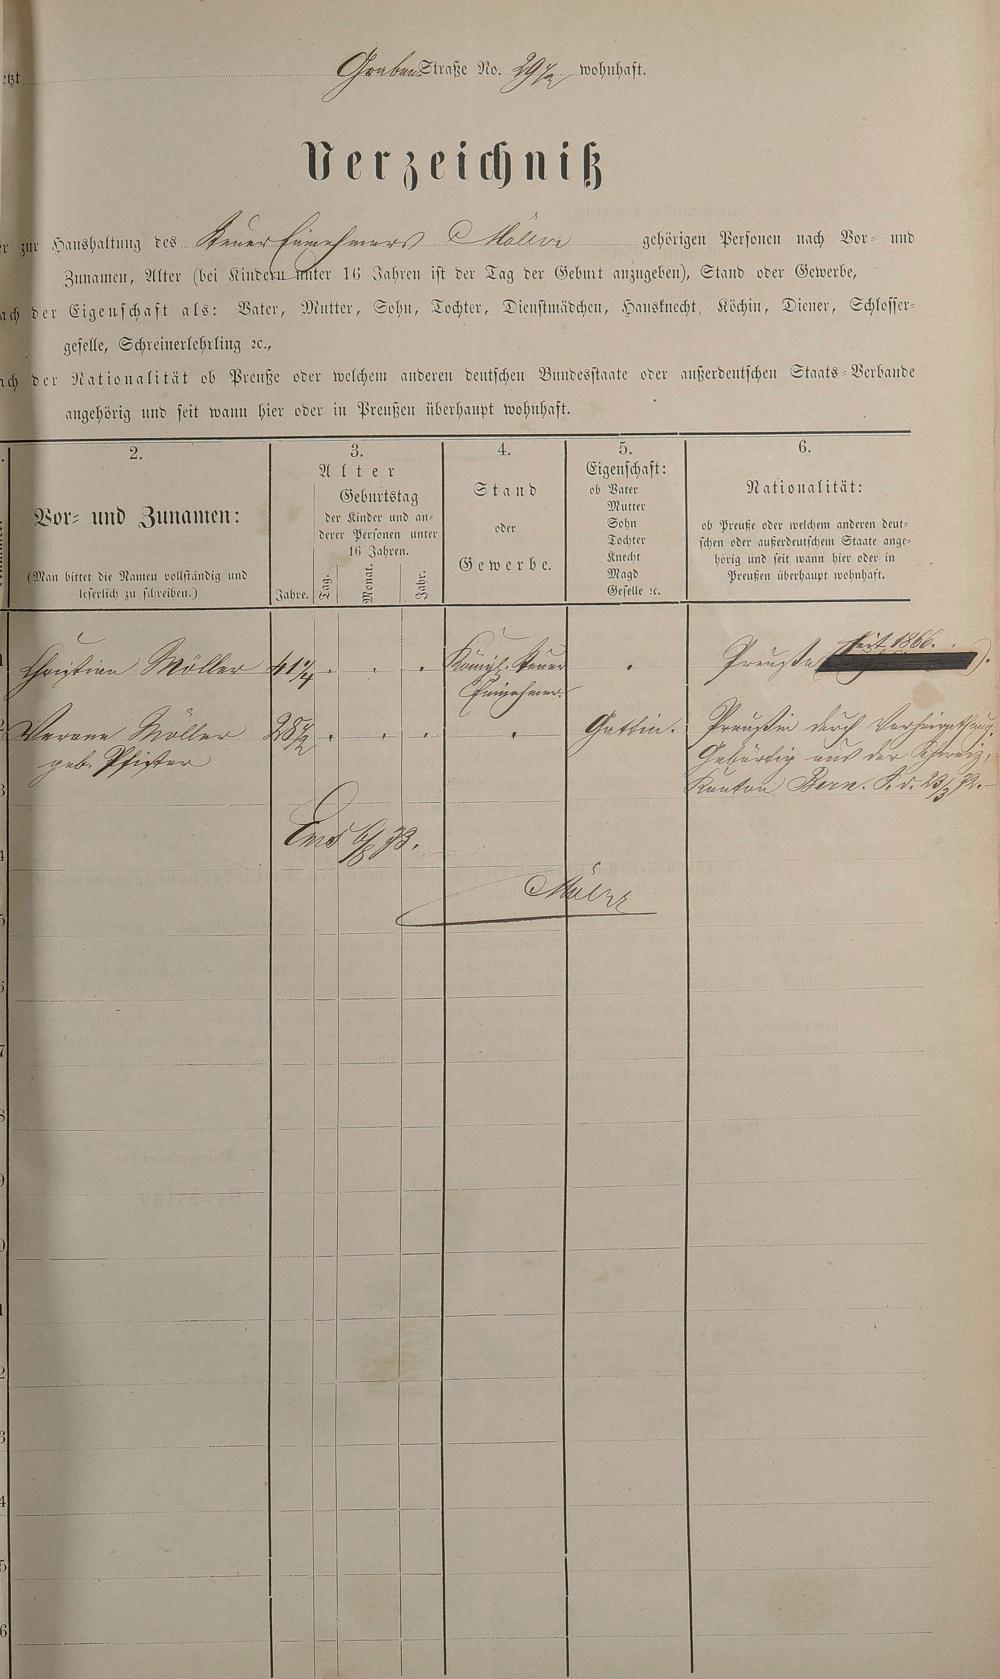 etzt Graben Straße No. 29½ wohnhaft.
Verzeichniß
er zur Haushaltung des Steuer Einnehmers Möller gehörigen Personen nach Vor- und
Zunamen, Alter (bei Kindern unter 16 Jahren ist der Tag der Geburt anzugeben), Stand oder Gewerbe,
ach der Eigenschaft als: Vater, Mutter, Sohn, Tochter, Dienstmädchen, Hausknecht, Köchin, Diener, Schlosser-
geselle, Schreinerlehrling ꝛc.,
ach der Nationalität ob Preuße oder welchem anderen deutschen Bundesstaate oder außerdeutschen Staats-Verbande
angehörig und seit wann hier oder in Preußen überhaupt wohnhaft.
2.
Vor- und Zunamen:
(Man bittet die Namen vollständig und
leserlich zu schreiben.)
3.
Alter
Geburtstag
der Kinder und an-
derer Personen unter
16 Jahren.
Jahre.
Tag.
Monat.
Jahr.
4.
Stand
oder
Gewerbe.
5.
Eigenschaft:
ob Vater
Mutter
Sohn
Tochter
Knecht
Magd
Geselle ꝛc.
6.
Nationalität:
ob Preuße oder welchem anderen deut-
schen oder außerdeutschem Staate ange-
hörig und seit wann hier oder in
Preußen überhaupt wohnhaft.
seit 1866.
1 Christian Möller 41¼ Königl. Steuer Preuße
Einnehmer
2 Verene Möller 28½ Gattin. Preußin durch Verheirathung.
geb. Pfister Gebürtig aus der Schweiz,
3 Kanton Bern. S. d. 23/3 72.
Ems 6/8 73.
4
Möller
5
6
7
8
9
0
1
2
3
4
5
6